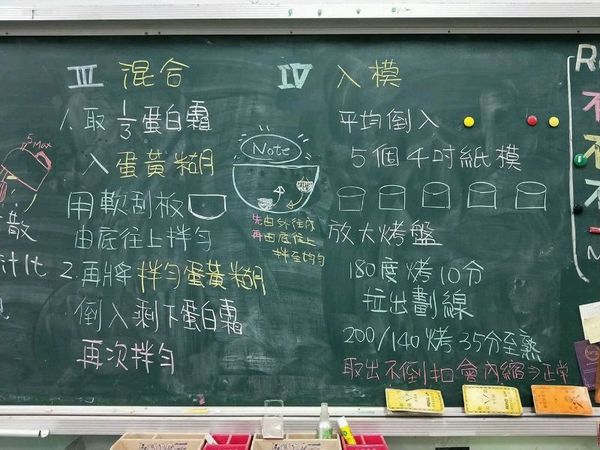 III 混合
1. 取 1/3 蛋白霜
入 蛋黃糊
用軟刮板
由底往上拌勻
2. 再將 拌勻蛋黃糊
倒入 剩下蛋白霜
再次拌勻
Note
再由底往上
IV 入模
平均倒入
5個4吋紙模
放大烤盤
180度烤10分
拉出劃線
200/140 烤 35分至熟
取出不倒扣會內縮⇒正常
5 Max
散
R
不
不
不